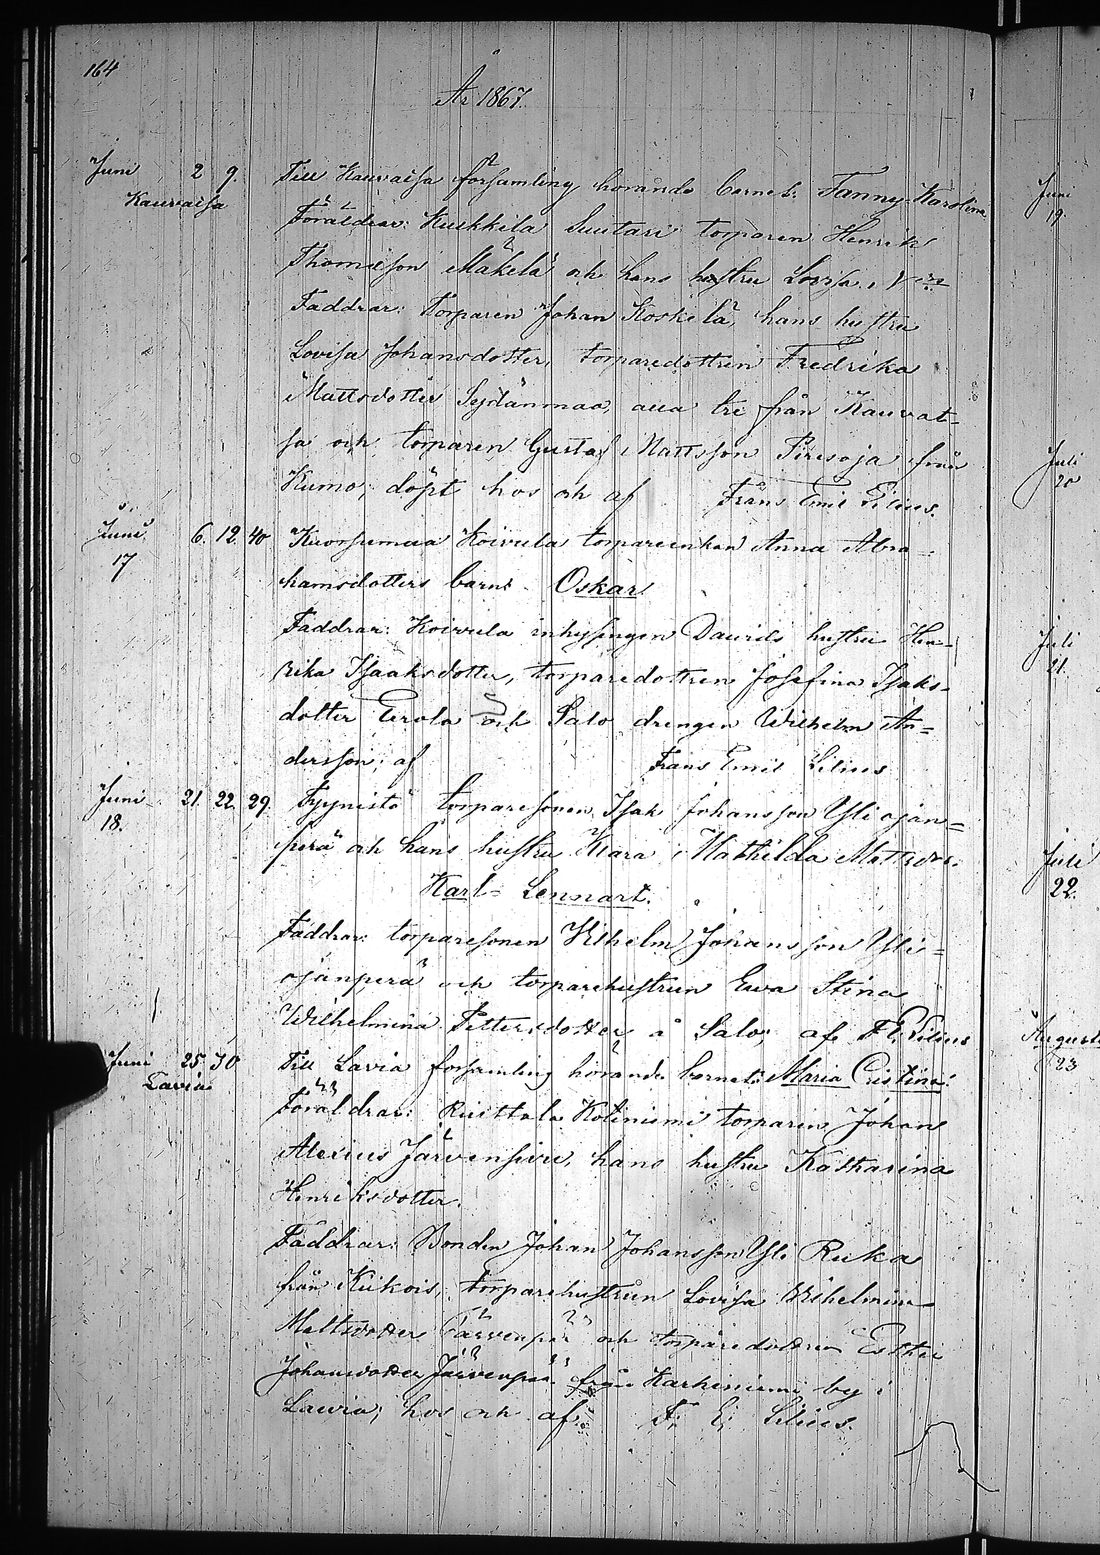 164
År 1867.
Juni 2 9. Till Kauvatsa församling hörande barnet: Fanny Karolina
Kauvatsa Föräldrar: Kuckkila Suutari torparen Henrik
Thomasson Mäkelä och hans hustru Lovisa
Faddrar: torparen Johan Koskela, hans hustru
Lovisa Johansdotter, torparedottren Fredrika
Mattsdotter Sydänmaa, alla tre från Kauvat-
sa och torparen Gustaf Mattsson Piresoja från
Kumo; döpt hos och af Frans Emil Lilius.
Juni 6. 12. 40 Kuorsumaa Koivula torpareenkan Anna Abra-
17 hamsdotters barn: Oskar
Faddrar: Koivula inhysingen Davids hustru Hen-
rika Isaaksdotter, torparedottren Josefina Isaks-
dotter Erola och Salo drengen Wilhelm An-
dersson; af Frans Emil Lilius
Juni 21. 22. 29. Tyynistö torparesonen Isak Johansson Yliojan-
18. perä och hans hustru Klara Mathilda Mattsdr:
Karl Lennart.
Faddrar: torparesonen Wilhelm Johansson Yli-
ojanperä och torparehustrun Eva Stina
Wilhelmina Pettersdotter å Salo; af F E Lilius
Juni 25 30 Till Lavia församling hörande barnet: Maria Cristina:
Lavia Föräldrar: Riuttala Kotiniemi torparen Johan
Alexius Järvensivu, hans hustru Katharina
Henriksdotter.
Faddrar: Bonden Johan Johansson Yli Ruka
från Kiikois, torparehustrun Lovisa Wilhelmina
Mattsdotter Järvenpää och torparedottren Esther
Johansdotter Järvenpää från Karhiniemi by i
Lavia; hos och af F. E. Lilius.
Juni
19.
Juli
20
Juli
21.
Juli
22.
Augusti
23